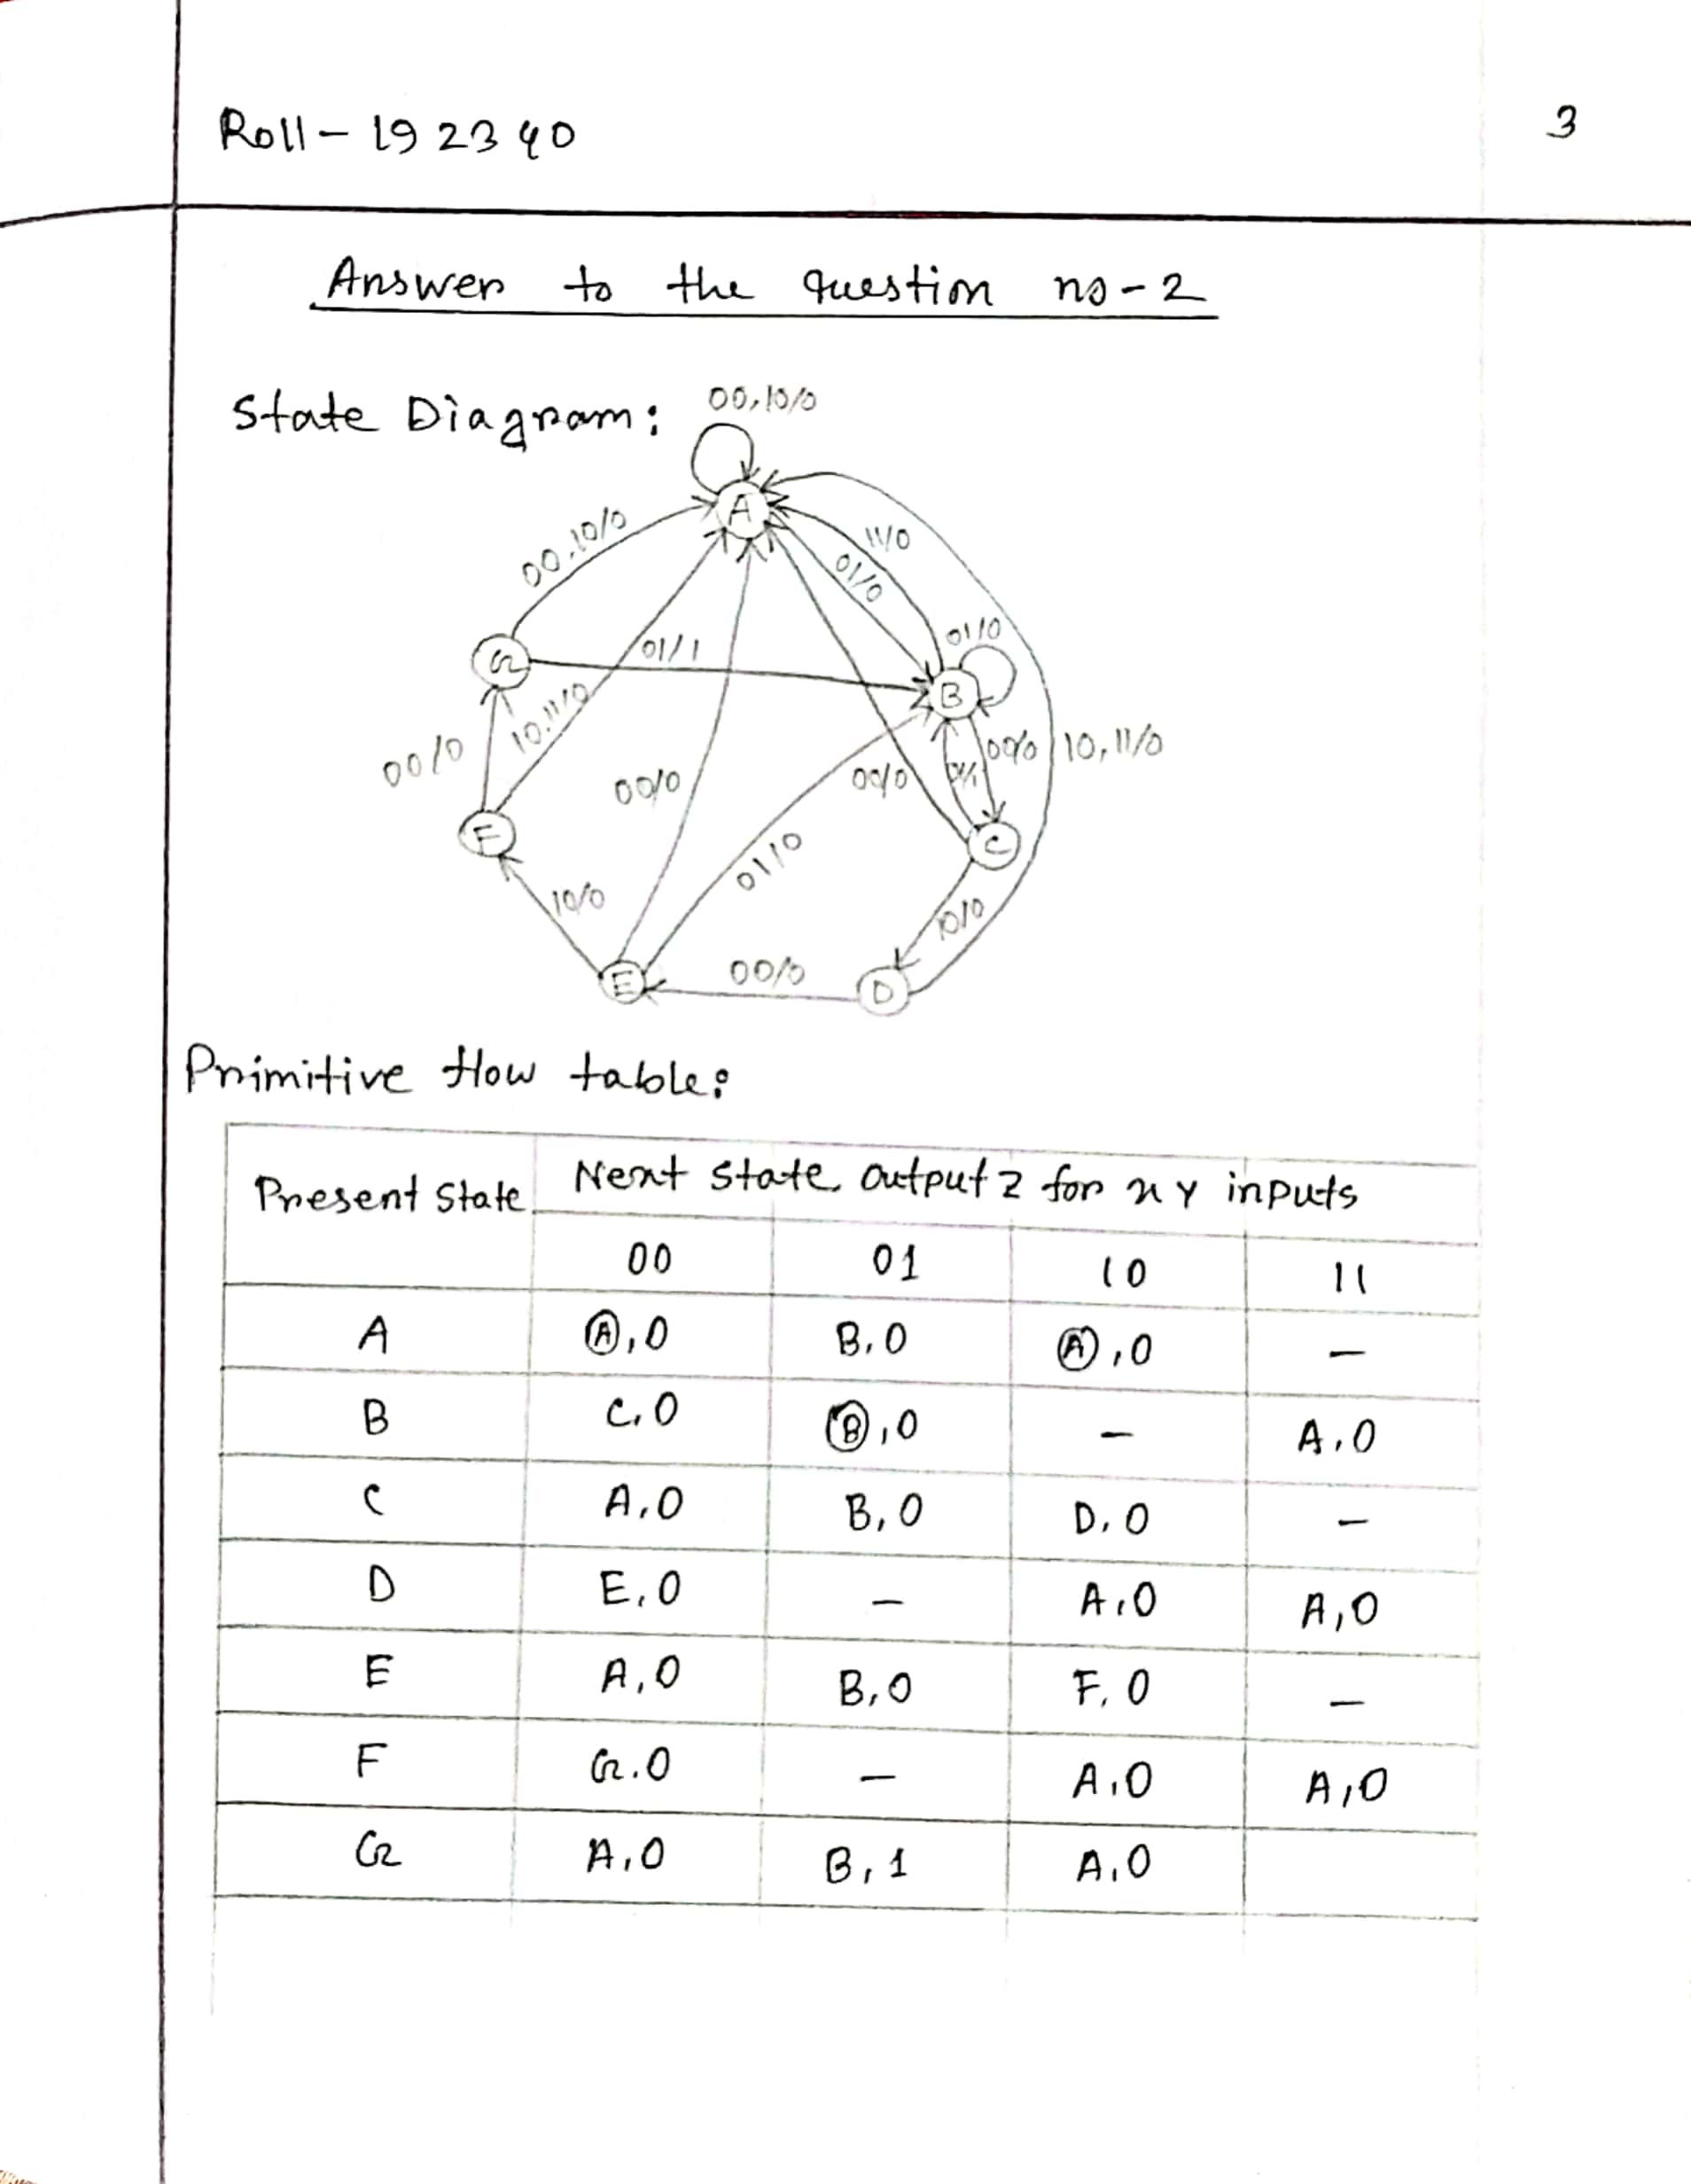 Roll - 192340
3
Answer to the question no-2
State Diagram:
00,10/0
A
00,10/0
11/0
01/0
01/0
G
01/1
B
10,11/0
00/0
00/0
10,11/0
00/0
00/0
F
C
01/0
10/0
10/0
00/0
E
D
Primitive flow table:
Present State Next State, output z for x y inputs
00 01 10 11
A A,0 B,0 A,0 -
B C,0 B,0 - A,0
C A,0 B,0 D,0 -
D E,0 - A,0 A,0
E A,0 B,0 F,0 -
F G,0 - A,0 A,0
G A,0 B,1 A,0